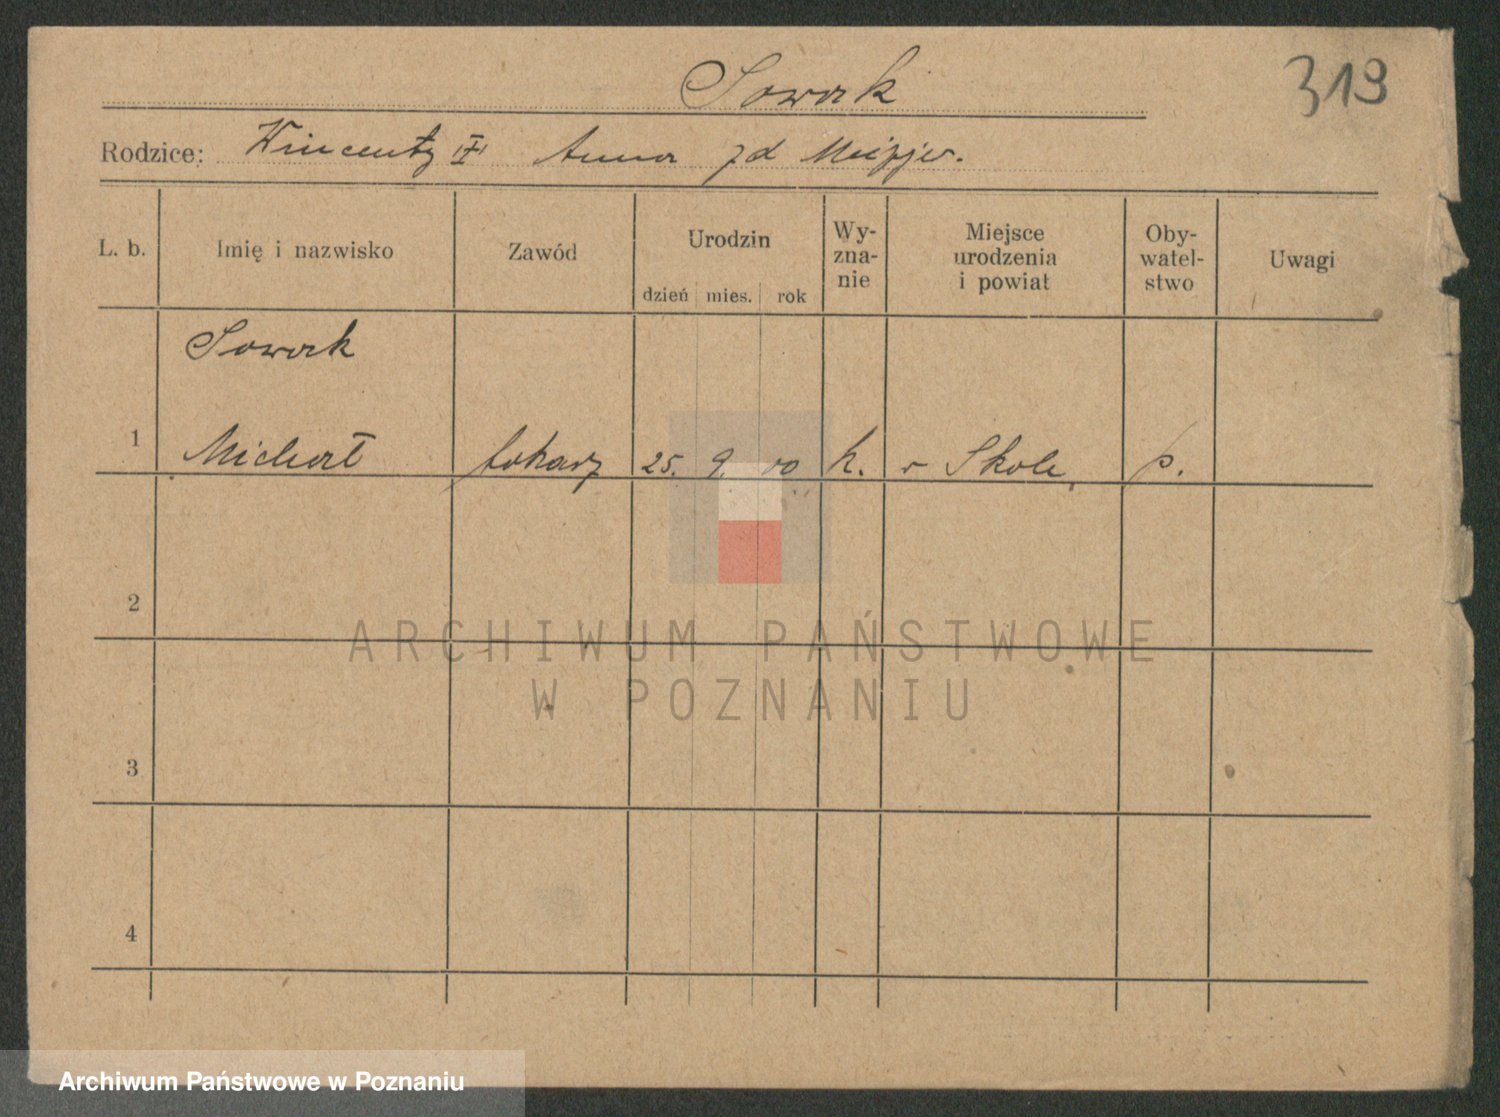 Sowak
319
Rodzice: Wincenty Anna zd
L. b. Imię i nazwisko Zawód Urodzin dzień mies. rok Wy-
zna-
nie Miejsce
urodzenia
i powiat Oby-
watel-
stwo Uwagi
Sowak
1 Michał tokarz 25. 9. 00 k. Skole p.
2
3
4
ARCHIWUM PAŃSTWOWE
W POZNANIU
Archiwum Państwowe w Poznaniu